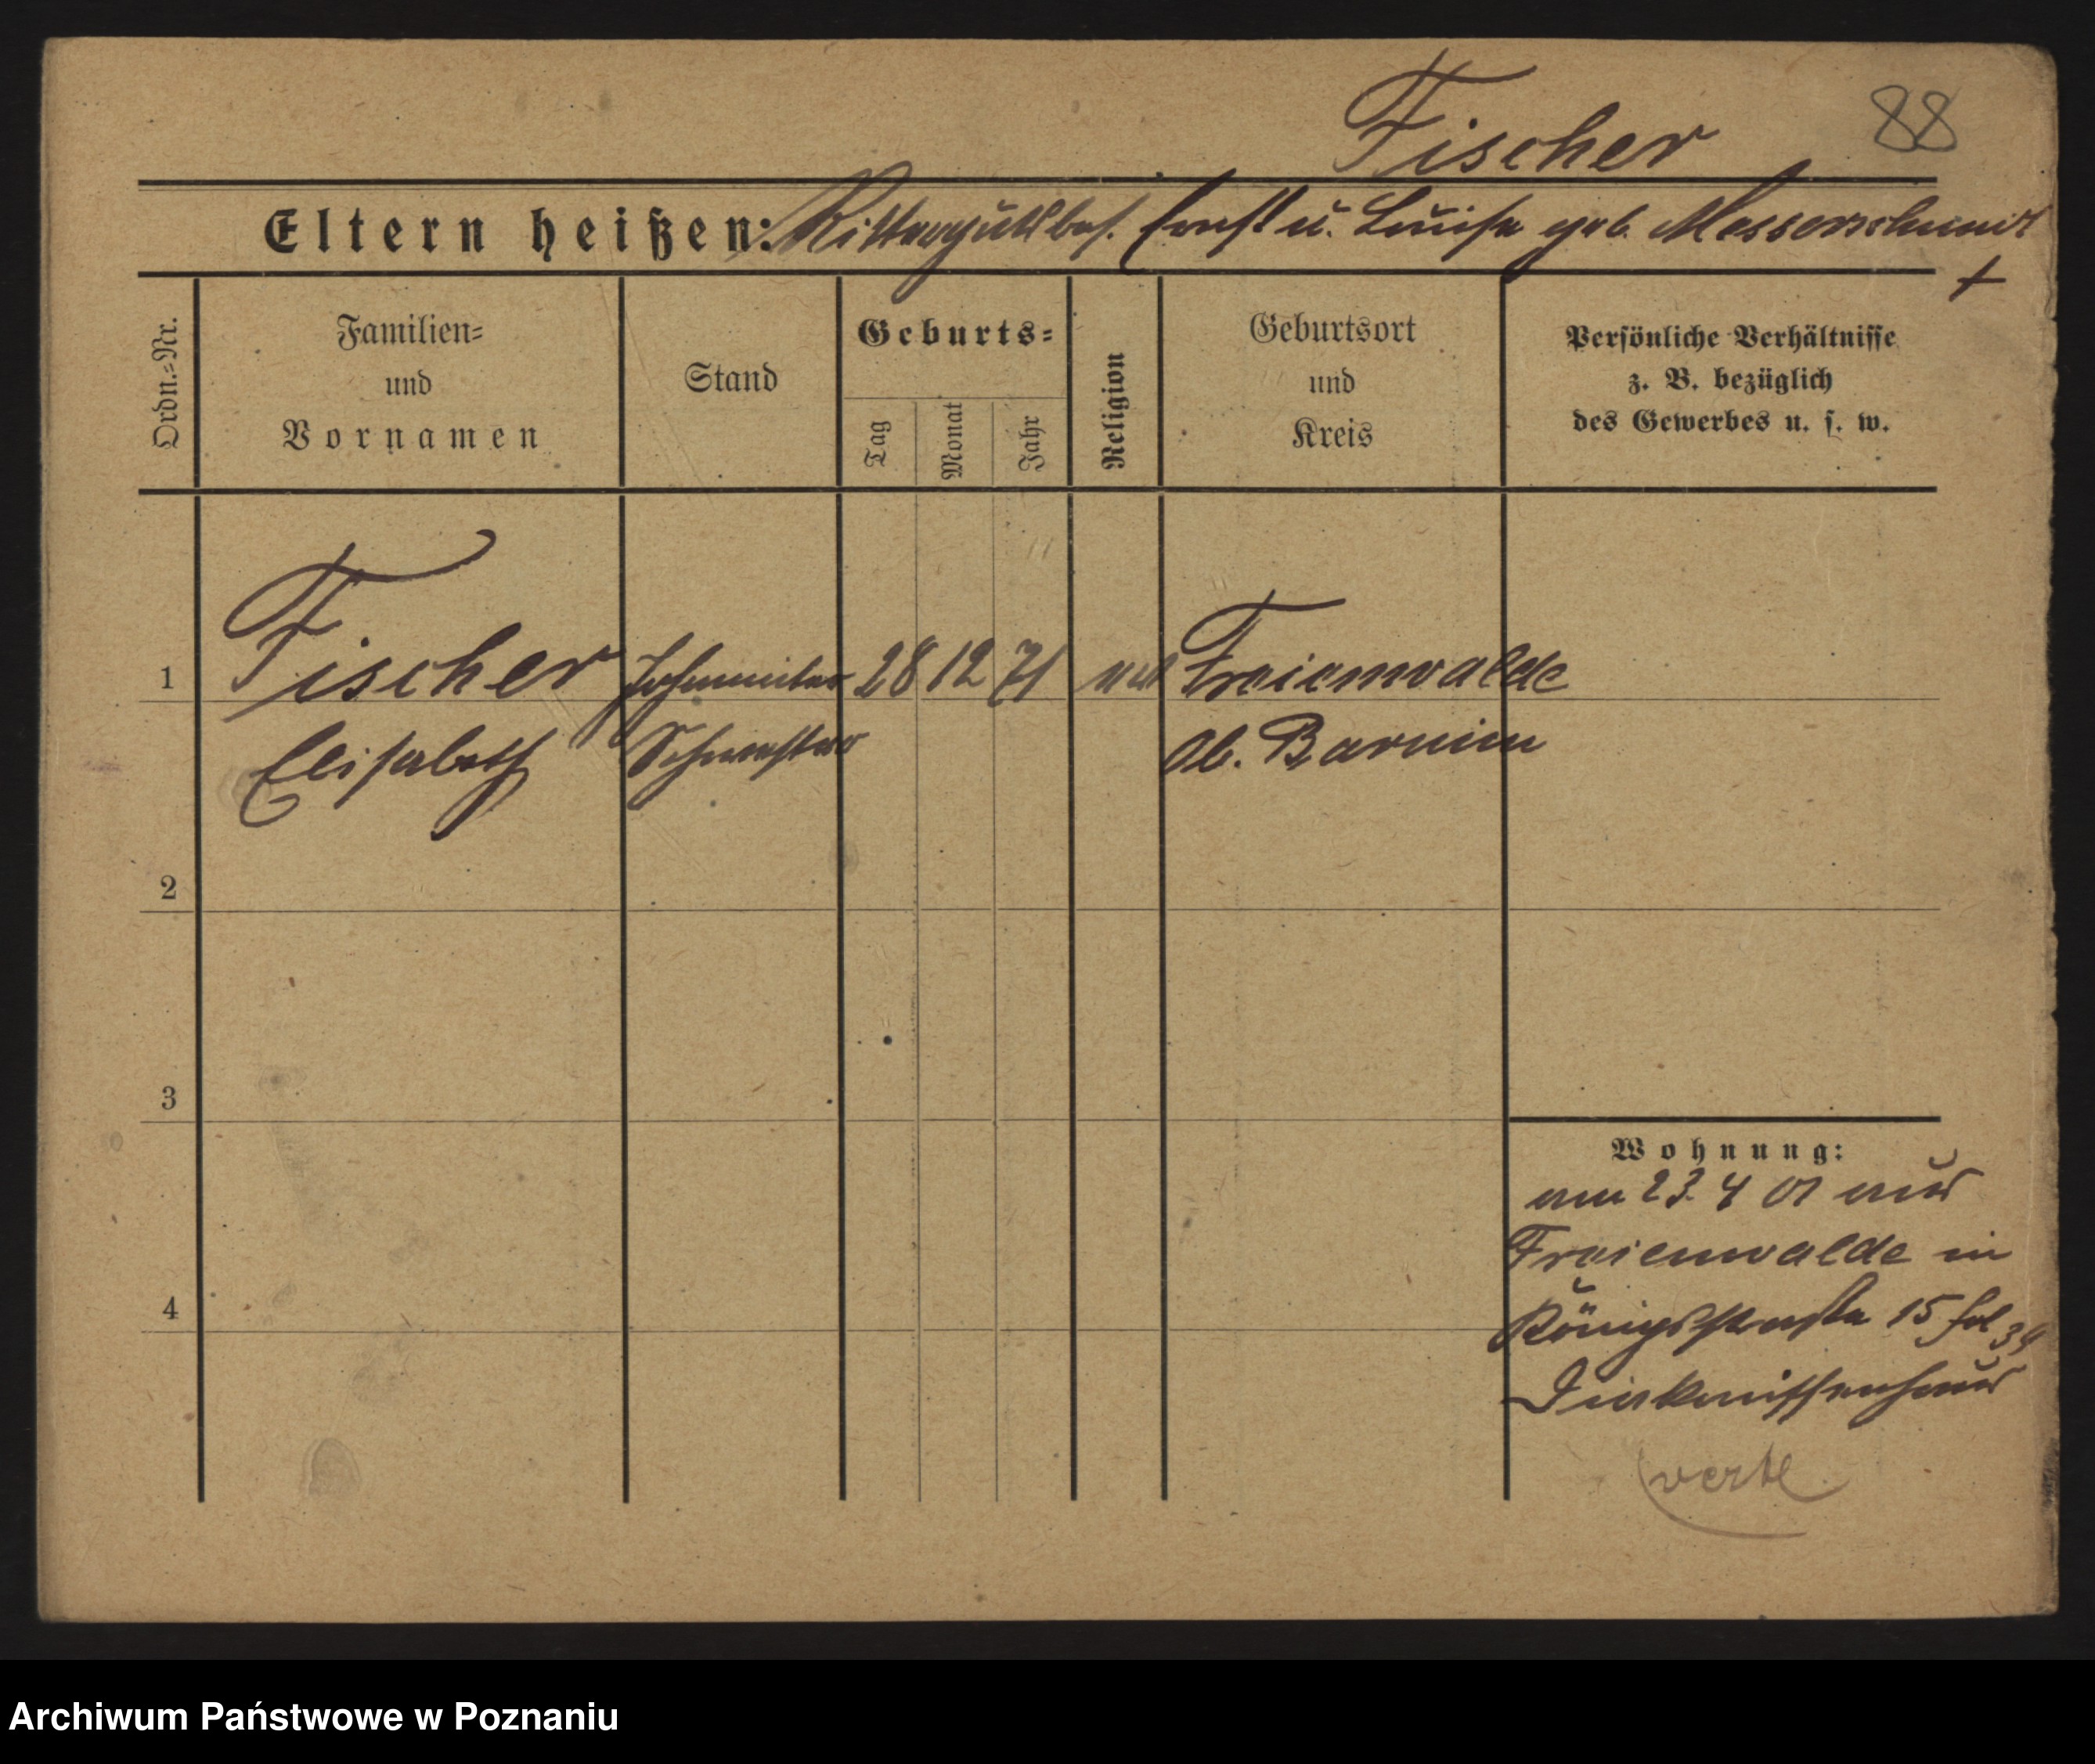 Fischer
88
Eltern heißen: Rittergutsbes. Ernst u. Luise geb. Messerschmidt
†
Ordn.-Nr.
Familien-
und
Vornamen
Stand
Geburts-
Tag
Monat
Jahr
Religion
Geburtsort
und
Kreis
Persönliche Verhältnisse
z. B. bezüglich
des Gewerbes u. s. w.
1 Fischer Johanniter 28 12 71 Freienwalde
Elisabeth Schwester Ob. Barnim
2
3
4
Wohnung:
am 23. 4 01 aus
Freienwalde in
Königsstraße 15 fol 34
Diakonissenhaus
verte
Archiwum Państwowe w Poznaniu